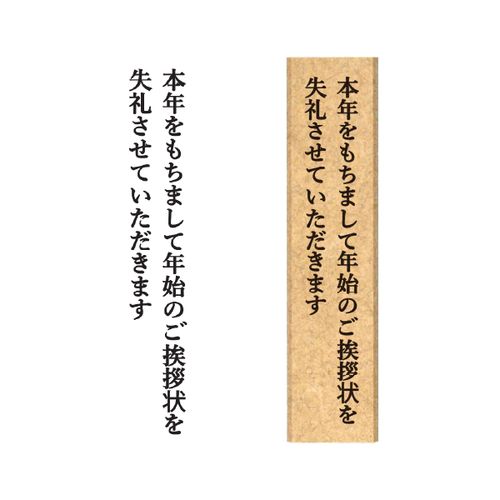 本年をもちまして年始のご挨拶状を
失礼させていただきます
本年をもちまして年始のご挨拶状を
失礼させていただきます